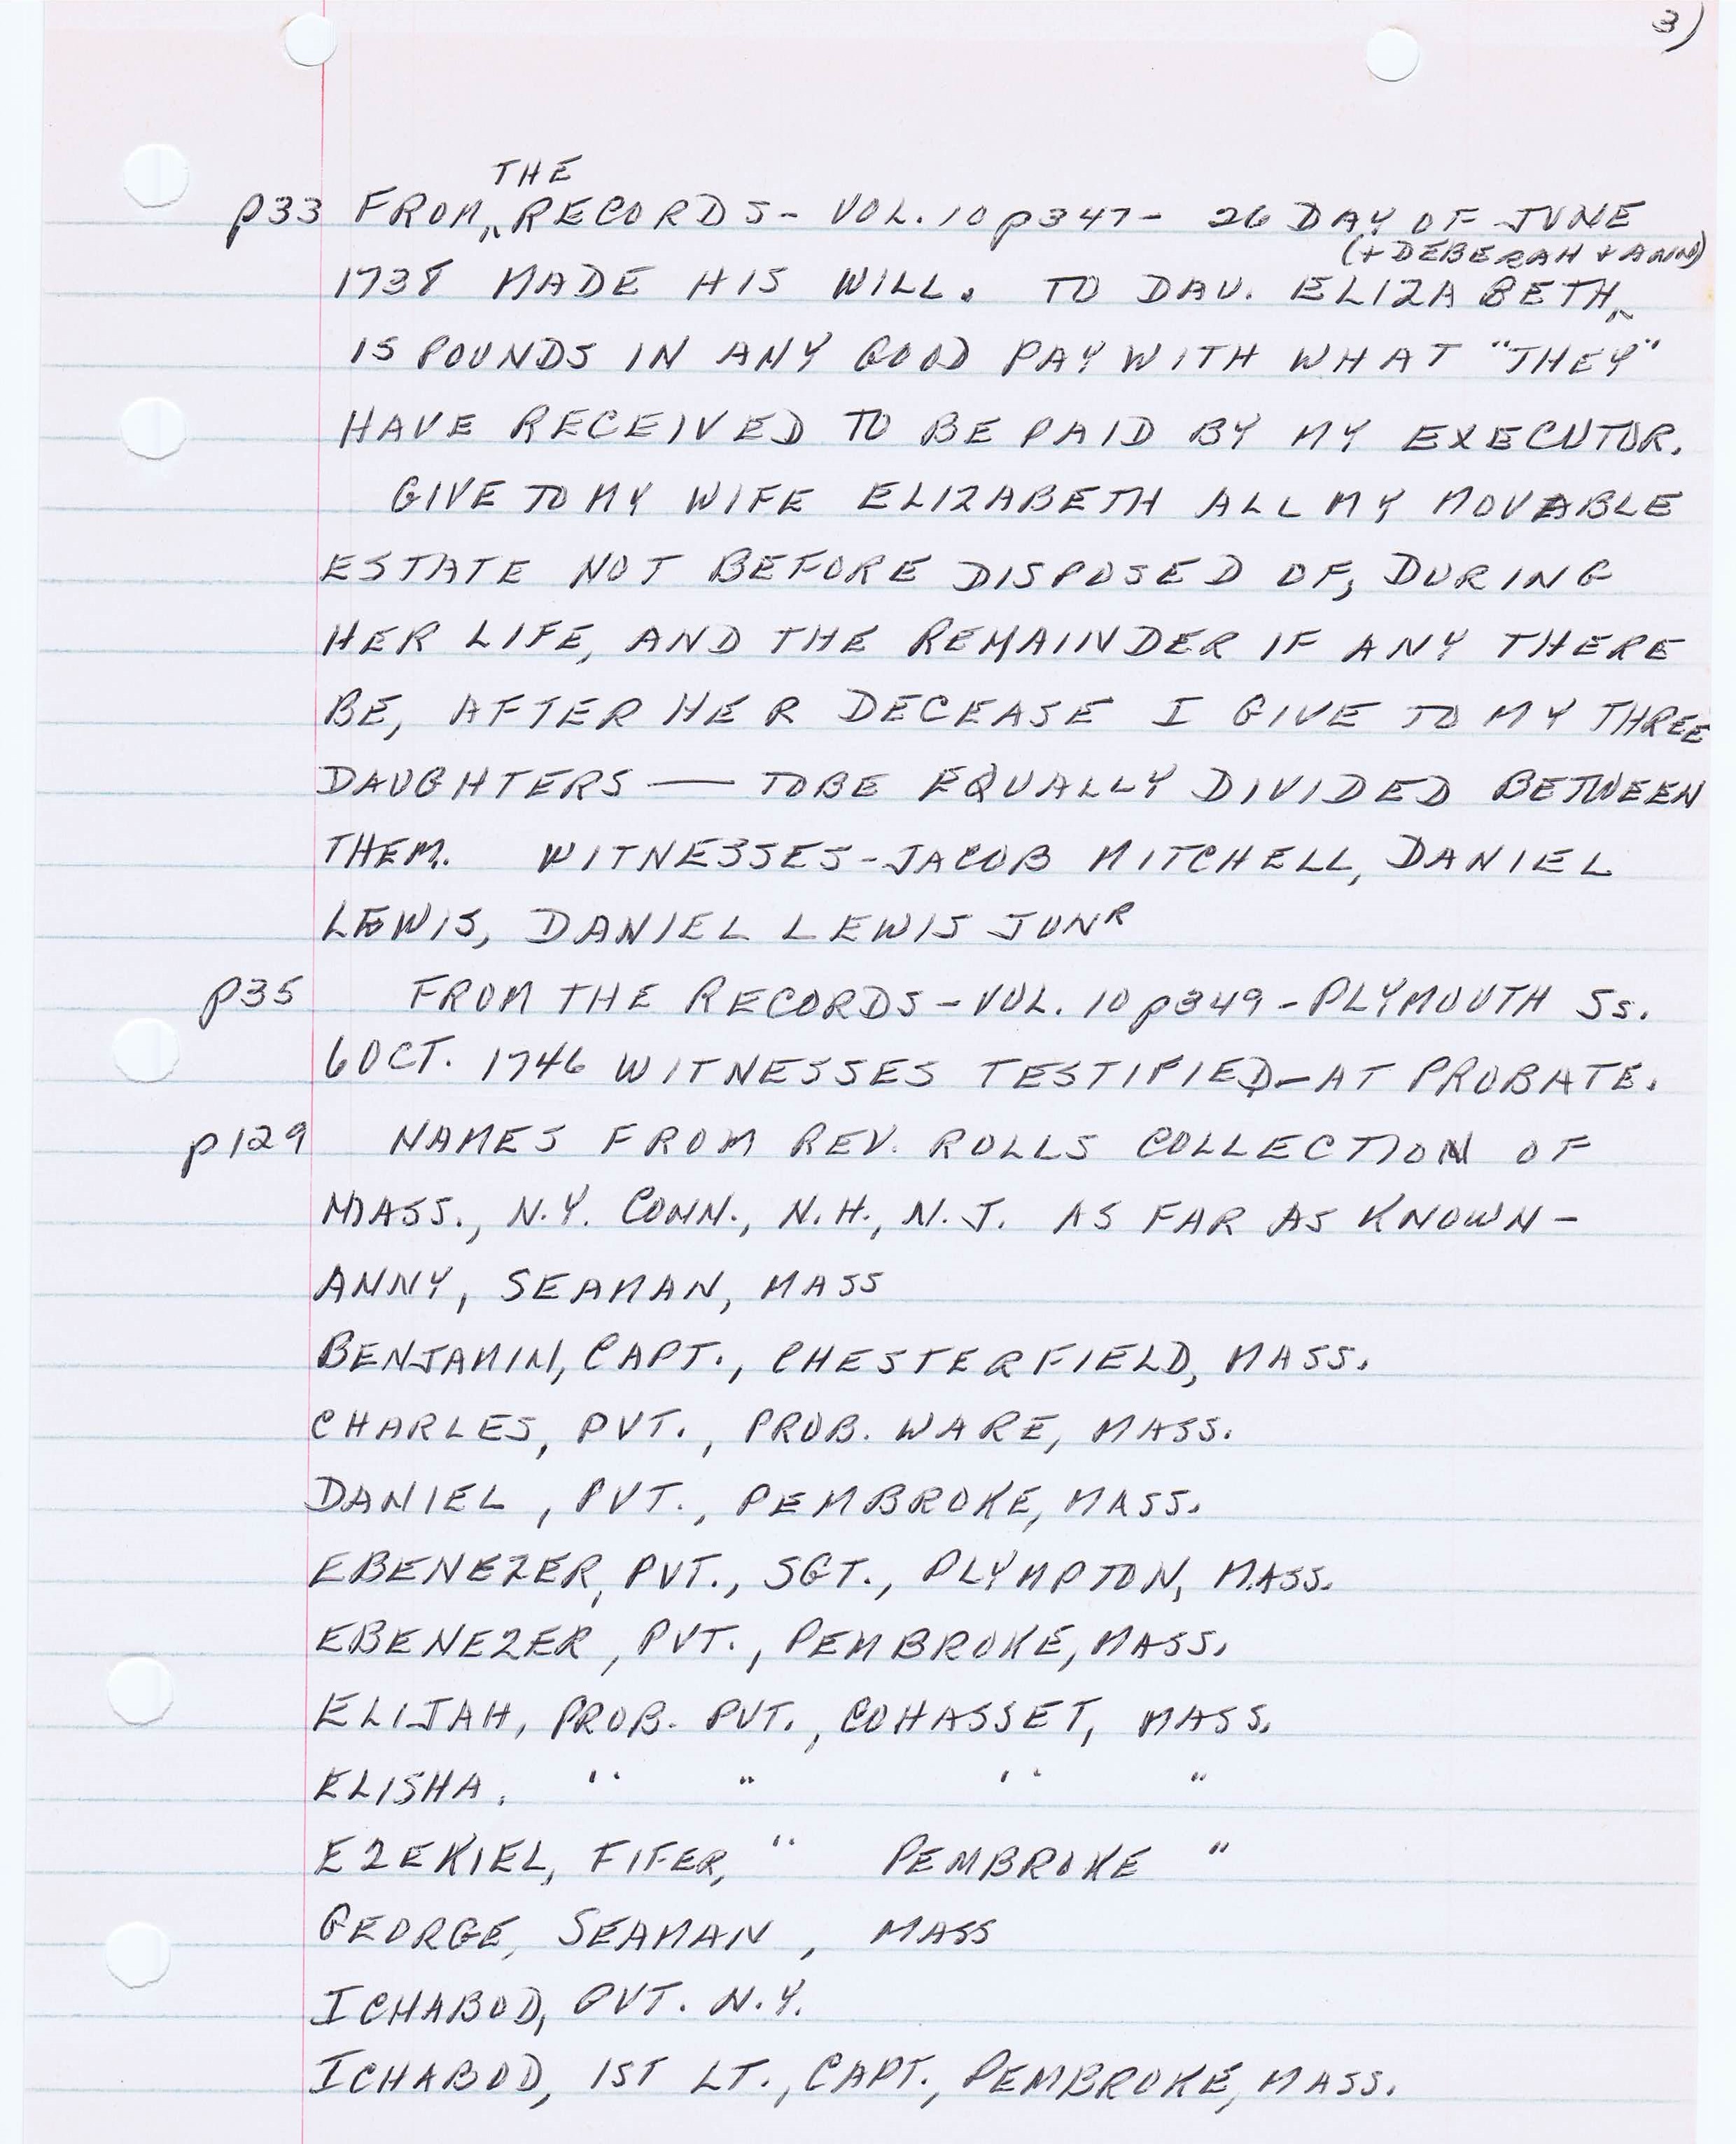 3)
THE
p33 FROM ^ RECORDS - VOL. 10 p347 - 26 DAY OF JUNE
(+ DEBERAH + ANN)
1738 MADE HIS WILL. TO DAU. ELIZABETH ^
15 POUNDS IN ANY GOOD PAY WITH WHAT "THEY"
HAVE RECEIVED TO BE PAID BY MY EXECUTOR.
GIVE TO MY WIFE ELIZABETH ALL MY MOVABLE
ESTATE NOT BEFORE DISPOSED OF, DURING
HER LIFE, AND THE REMAINDER IF ANY THERE
BE, AFTER HER DECEASE I GIVE TO MY THREE
DAUGHTERS — TO BE EQUALLY DIVIDED BETWEEN
THEM. WITNESSES - JACOB MITCHELL, DANIEL
LEWIS, DANIEL LEWIS JUNR
p35 FROM THE RECORDS - VOL. 10 p349 - PLYMOUTH Ss.
6 OCT. 1746 WITNESSES TESTIFIED - AT PROBATE.
p129 NAMES FROM REV. ROLLS COLLECTION OF
MASS., N.Y. CONN., N.H., N.J. AS FAR AS KNOWN -
ANNY, SEAMAN, MASS
BENJAMIN, CAPT., CHESTERFIELD, MASS.
CHARLES, PVT., PROB. WARE, MASS.
DANIEL, PVT., PEMBROKE, MASS.
EBENEZER, PVT., SGT., PLYMPTON, MASS.
EBENEZER, PVT., PEMBROKE, MASS.
ELIJAH, PROB. PVT., COHASSET, MASS.
ELISHA, " " " "
EZEKIEL, FIFER, " PEMBROKE "
GEORGE, SEAMAN, MASS
ICHABOD, PVT. N.Y.
ICHABOD, 1ST LT., CAPT., PEMBROKE, MASS.